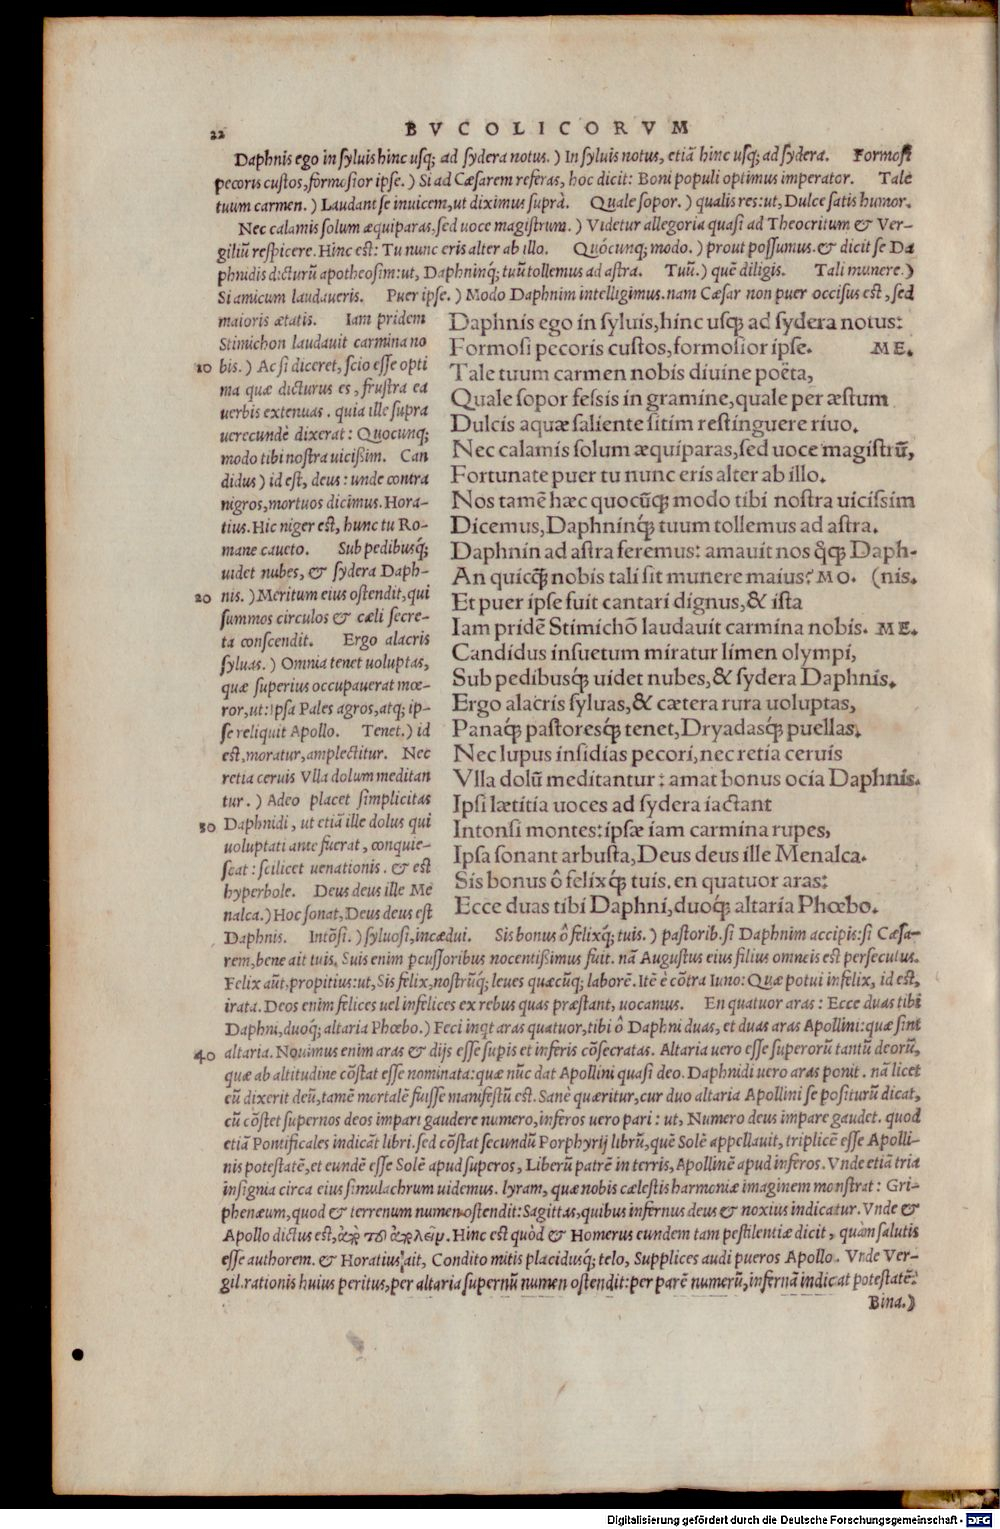 22
BVCOLICORVM
Daphnis ego in syluis hinc usq; ad sydera notus.) In syluis notus, etiã hinc usq; ad sydera. Formosi
pecoris custos, formosior ipse.) Si ad Cæsarem referas, hoc dicit: Boni populi optimus imperator. Tale
tuum carmen.) Laudant se inuicem, ut diximus suprà. Quale sopor.) qualis res: ut, Dulce satis humor.
Nec calamis solum æquiparas, sed uoce magistrum.) Videtur allegoria quasi ad Theocritum & Ver-
giliũ respicere. Hinc est: Tu nunc eris alter ab illo. Quócunq; modo.) prout possumus. & dicit se Da
phnidis dicturũ apotheosim: ut, Daphninq́; tuũ tollemus ad astra. Tuũ.) quẽ diligis. Tali munere.)
Si amicum laudaueris. Puer ipse.) Modo Daphnim intelligimus. nam Cæsar non puer occisus est, sed
maioris ætatis. Iam pridem
Stimichon laudauit carmina no
10 bis.) Ac si diceret, scio esse opti
ma quæ dicturus es, frustra ea
uerbis extenuas. quia ille supra
uerecundè dixerat: Quocunq;
modo tibi nostra uicißim. Can
didus) id est, deus: unde contra
nigros, mortuos dicimus. Hora-
tius. Hic niger est, hunc tu Ro-
mane caueto. Sub pedibusq́;
uidet nubes, & sydera Daph-
20 nis.) Meritum eius ostendit, qui
summos circulos & cæli secre-
ta conscendit. Ergo alacris
syluas.) Omnia tenet uoluptas,
quæ superius occupauerat mœ-
ror, ut: Ipsa Pales agros, atq; ip-
se reliquit Apollo. Tenet.) id
est, moratur, amplectitur. Nec
retia ceruis Vlla dolum meditan
tur.) Adeo placet simplicitas
30 Daphnidi, ut etiã ille dolus qui
uoluptati ante fuerat, conquie-
scat: scilicet uenationis. & est
hyperbole. Deus deus ille Me
nalca.) Hoc sonat, Deus deus est
Daphnis ego in syluis, hinc usq; ad sydera notus:
Formosi pecoris custos, formosior ipse. ME.
Tale tuum carmen nobis diuine poëta,
Quale sopor fessis in gramine, quale per æstum
Dulcis aquæ saliente sitim restinguere riuo.
Nec calamis solum æquiparas, sed uoce magistrũ,
Fortunate puer tu nunc eris alter ab illo.
Nos tamẽ hæc quocũq; modo tibi nostra uicissim
Dicemus, Daphninq́; tuum tollemus ad astra.
Daphnin ad astra feremus: amauit nos q̃q; Daph-
An quicq̃ nobis tali sit munere maius? MO. (nis.
Et puer ipse fuit cantari dignus, & ista
Iam pridẽ Stimichõ laudauit carmina nobis. ME.
Candidus insuetum miratur limen olympi,
Sub pedibusq́; uidet nubes, & sydera Daphnis.
Ergo alacris syluas, & cætera rura uoluptas,
Panaq́; pastoresq́; tenet, Dryadasq́; puellas.
Nec lupus insidias pecori, nec retia ceruis
Vlla dolũ meditantur: amat bonus ocia Daphnis.
Ipsi lætitia uoces ad sydera iactant
Intonsi montes: ipsæ iam carmina rupes,
Ipsa sonant arbusta, Deus deus ille Menalca.
Sis bonus ô felixq́; tuis. en quatuor aras:
Ecce duas tibi Daphni, duoq́; altaria Phœbo.
Daphnis. Intõsi.) syluosi, incædui. Sis bonus ô felixq́; tuis.) pastorib. si Daphnim accipis: si Cæsa-
rem, bene ait tuis. Suis enim pcussoribus nocentißimus fuit. nã Augustus eius filius omneis est persecutus.
Felix aũt, propitius: ut, Sis felix, nostrũq́; leues quæcũq; laborẽ. Itẽ è cõtra Iuno: Quæ potui infelix, id est,
irata. Deos enim felices uel infelices ex rebus quas præstant, uocamus. En quatuor aras: Ecce duas tibi
Daphni, duoq́; altaria Phœbo.) Feci inqt aras quatuor, tibi ô Daphni duas, et duas aras Apollini: quæ sint
40 altaria. Nouimus enim aras & dijs esse supis et inferis cõsecratas. Altaria uero esse superorũ tantũ deorũ,
quæ ab altitudine cõstat esse nominata: quæ nũc dat Apollini quasi deo. Daphnidi uero aras ponit. nã licet
eũ dixerit deũ, tamẽ mortalẽ fuisse manifestũ est. Sanè quæritur, cur duo altaria Apollini se positurũ dicat,
cũ cõstet supernos deos impari gaudere numero, inferos uero pari: ut, Numero deus impare gaudet. quod
etiã Pontificales indicãt libri. sed cõstat secundũ Porphyrij librũ, quẽ Solẽ appellauit, triplicẽ esse Apolli-
nis potestatẽ, et eundẽ esse Solẽ apud superos, Liberũ patrẽ in terris, Apollinẽ apud inferos. Vnde etiã tria
insignia circa eius simulachrum uidemus. lyram, quæ nobis cælestis harmoniæ imaginem monstrat: Gri-
phenæum, quod & terrenum numen ostendit: Sagittas, quibus infernus deus & noxius indicatur. Vnde &
Apollo dictus est, Hinc est quòd & Homerus eundem tam pestilentiæ dicit, quàm salutis
esse authorem. & Horatius ait, Condito mitis placidusq́; telo, Supplices audi pueros Apollo. Vnde Ver-
gil. rationis huius peritus, per altaria supernũ numen ostendit: per parẽ numerũ, infernã indicat potestatẽ.
Bina.)
Digitalisierung gefördert durch die Deutsche Forschungsgemeinschaft - DFG